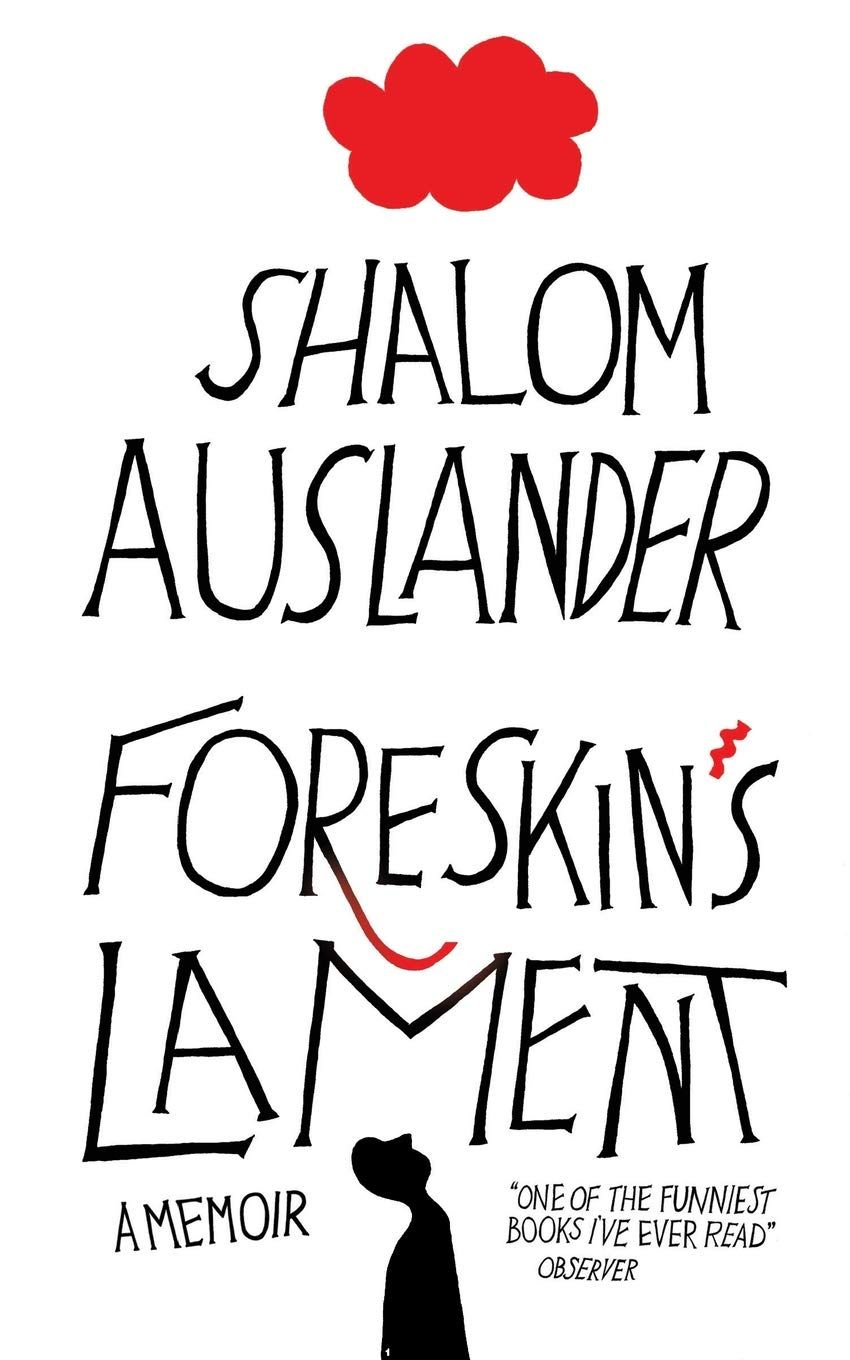 SHALOM
AUSLANDER
FORESKIN'S
LAMENT
A MEMOIR
“ONE OF THE FUNNIEST
BOOKS I'VE EVER READ”
OBSERVER
1